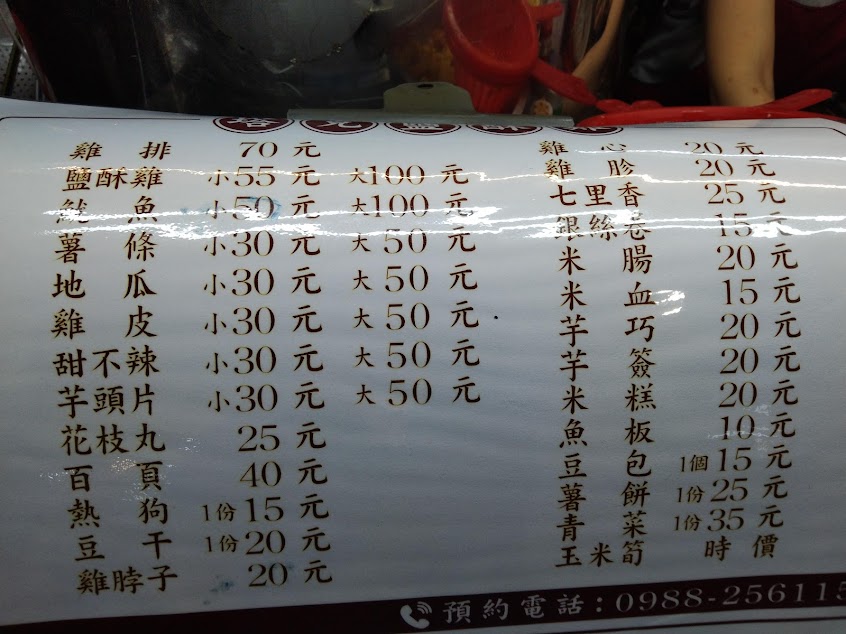 雞排 70元
鹽酥雞 小55元 大100元
魷魚 小50元 大100元
薯條 小30元 大50元
地瓜 小30元 大50元
雞皮 小30元 大50元
甜不辣 小30元 大50元
芋頭片 小30元 大50元
花枝丸 25元
百頁 40元
熱狗 1份15元
豆干 1份20元
雞脖子 20元
雞心 20元
雞胗 20元
七里香 25元
銀絲卷 15元
米腸 20元
米血 15元
芋巧 20元
芋簽 20元
米糕 20元
魚板 10元
豆包 1個15元
薯餅 1份25元
青菜 1份35元
玉米筍 時價
預約電話：0988-256115